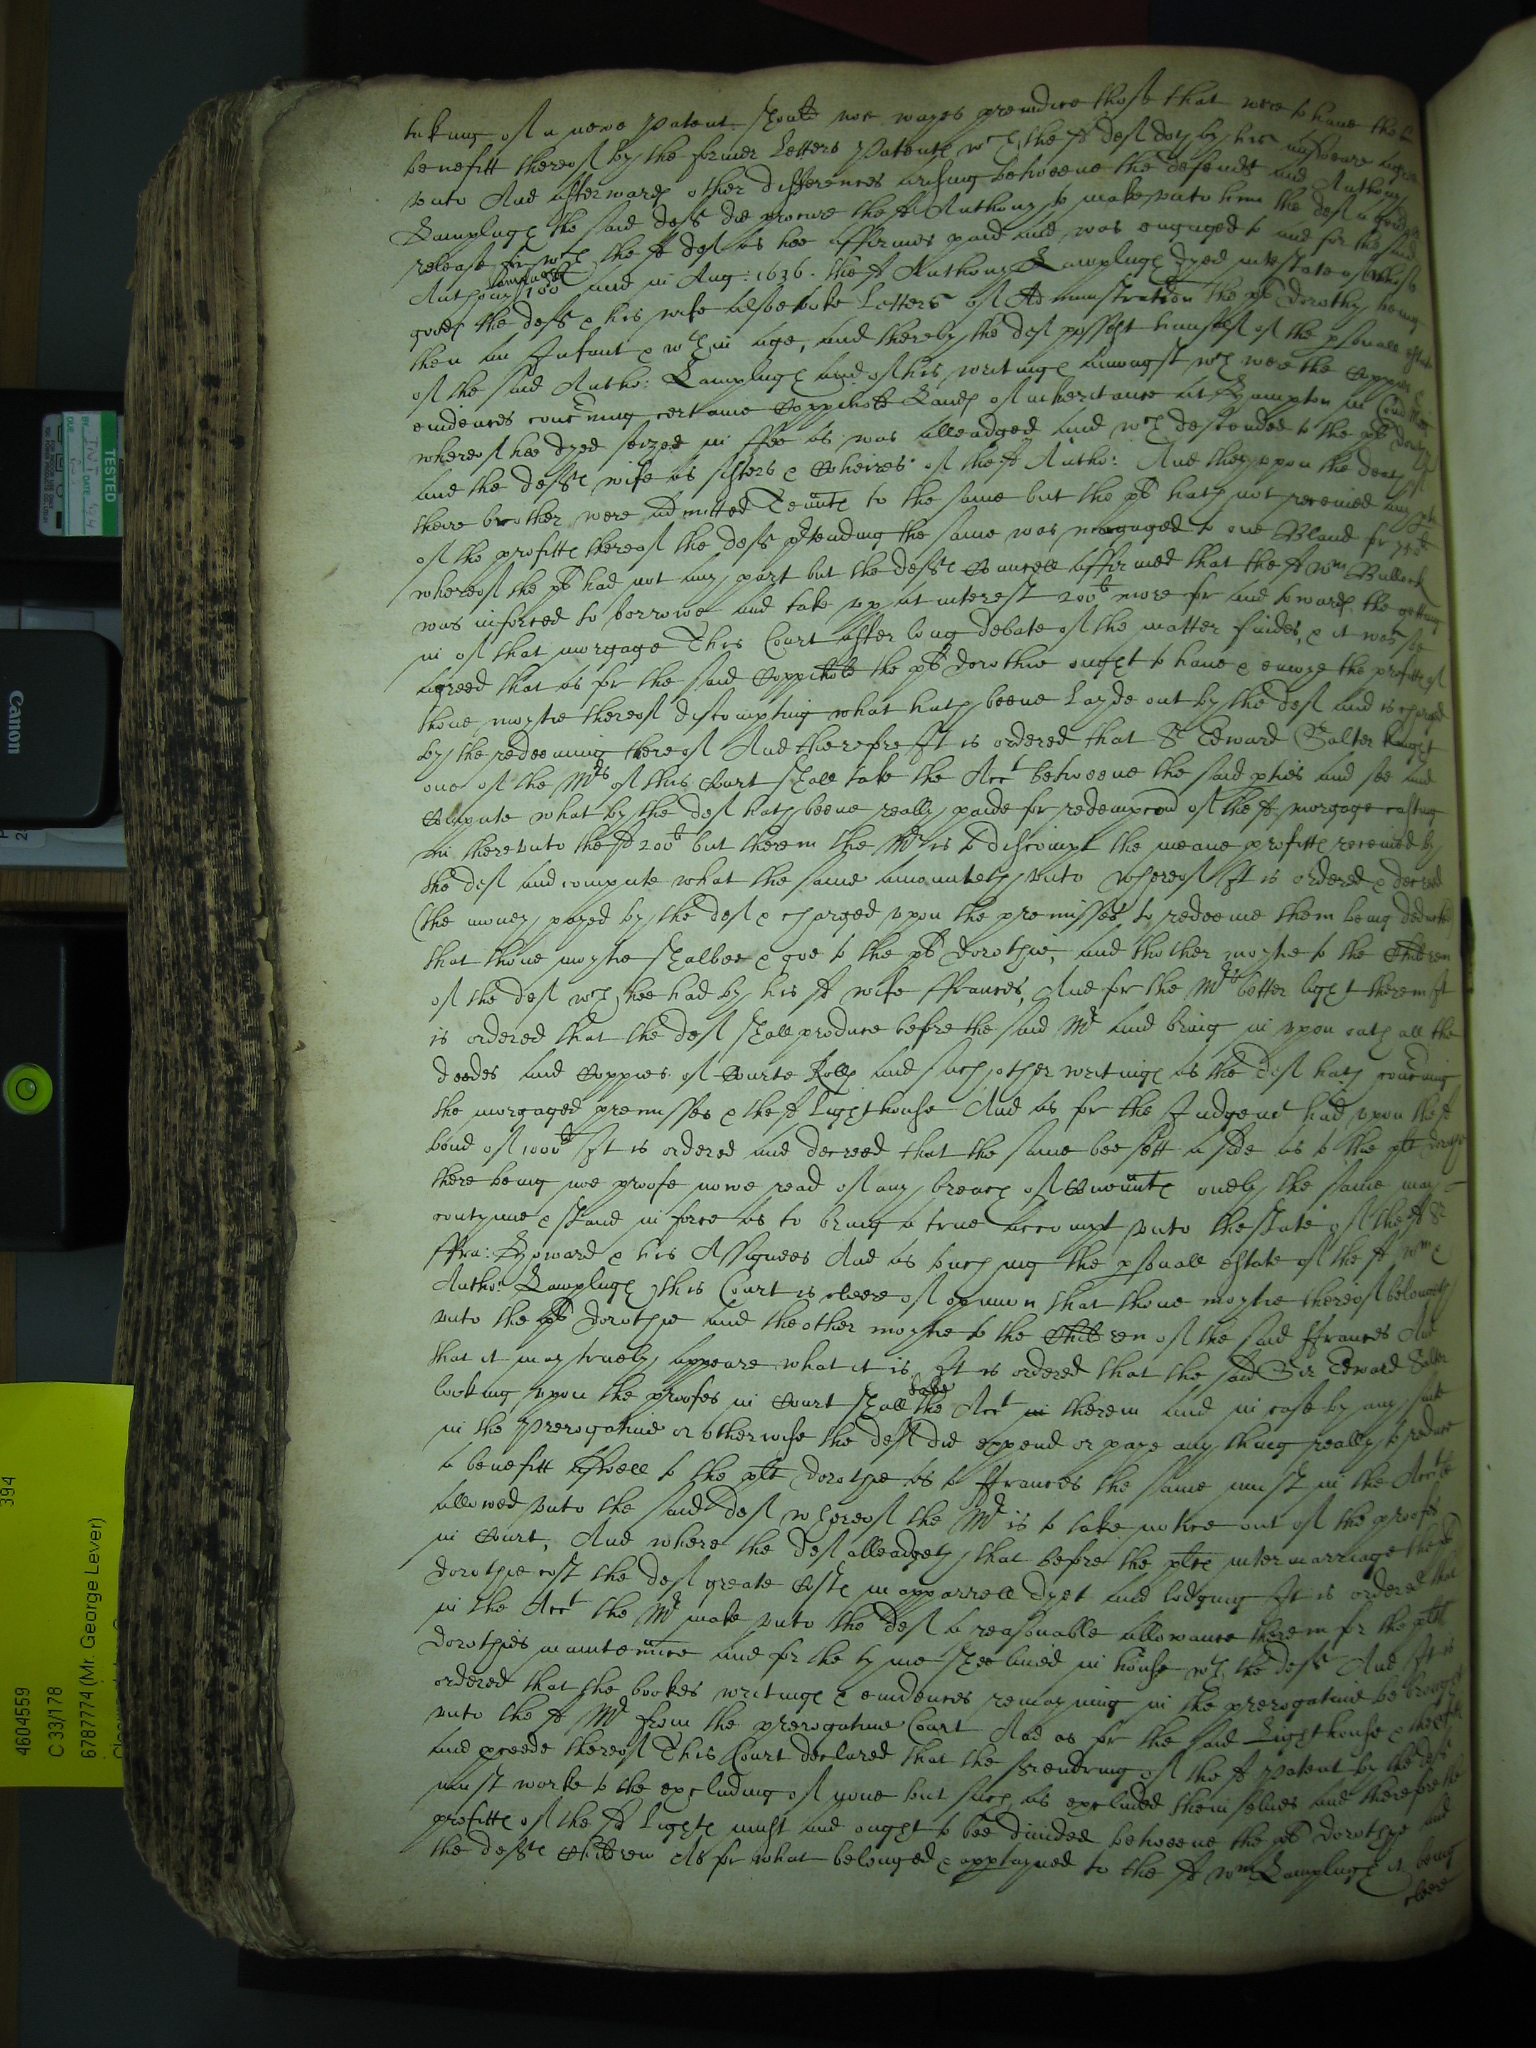 taking of a newe Patent should noe wayes preiudice those that were to have the
benefitt thereof by the former Letters Patents wch the sd deft doth by his answeare agree
vnto And afterwards other differences arising betweene the defendt and Anthony
Lamplugh the said deft did procure the sd Anthony to make vnto him the deft a
release for wch the sd deft as hee affirmes paid and was engaged to and for the said
Anthony Lamplugh 100 and in Aug: 1636. the sd Anthony Lamplugh dyed intestate of whose
goods the deft & his wife alsoe tooke Letters of Administracon the pl Dorothy being
then an Infant & wthin age, and thereby the deft possest himself of the psonall estate
of the said Antho: Lamplugh and of his writings amongst wch were the Coppies &
evidences concerning certaine Coppihold Lands of inheritance at Hampton in
whereof hee dyed seized in ffee as was alleadged and wch descended to the pl Dorothy
and the defts wife as sisters & Coheires of the sd Antho: And they vpon the death of
theire brother were admitted Tenants to the same but the pl hath not receiued any pte
of the profitts thereof the deft ptending the same was morgaged to one Bland for
whereof the pl had not any part but the defts Councell affirmed that the sd Wm Bullock
was inforced to borrowe and take vp at interest 200l more for and towards the getting
in of that morgage This Court after long debate of the matter findes, & it was soe
agreed that as for the said Coppihold the pl Dorothie ought to have & enioye the profitts of
thone moytie thereof discompting what hath beene Layde out by the deft and is charged
by the redeeming thereof And therefore It is ordered that Sr Edward Salter knight
one of the Mrs of this Court shall take the Acct betweene the said pties and see and
Compute what by the deft hath beene really paide for redempcon of the sd morgage casting
in therevnto the sd 200l but therein the Mr is to discompt the meane profitts receiued by
the deft and compute what the same amounteth vnto whereof It is ordered & decreed
(the money payed by the deft & charged vpon the premisses to redeeme them being deducted)
that thone moytie shalbee & goe to the pl Dorothie, and thother moytie to the Children
of the deft wch hee had by his sd wife ffrances, And for the Mrs better light therein It
is ordered that the deft shall produce before the said Mr and bring in vpon oath all the
deedes and Coppies of Courte Rolls and such other writings as the deft hath concerning
the morgaged premisses & the sd Lighthouse And as for the Judgemt had vpon the sd
bond of 1000l It is ordered and decreed that the same bee sett aside as to the plt Dorothie
there being noe proofe nowe read of any breach of Covenants onely the same may
contynue & stand in force as to bring a true accompt vnto the State of the sd Sr
ffra: Howard & his Assignees And as touching the psonall estate of the sd Wm &
Antho: Lamplugh this Court is cleere of opinion that thone moytie thereof belongeth
vnto the pl Dorothie and the other moytie to the Children of the said ffrances And
that it may truely appeare what it is It is ordered that the said Sir Edward Salter
looking vpon the proofes in Court shall take the Acct in therein and in case by any suite
in the Prerogative or otherwise the deft did expend or paye any thing really to reduce
to benefitt aswell to the plt Dorothie as to ffrances the same must in the Acct be
allowed vnto the said deft whereof the Mr is to take notice out of the proofes
in Court, And where the deft alleadgeth that before the plts intermarriage the sd
Dorothie cost the deft greate Costs in apparrell dyet and lodging It is ordered that
in the Acct the Mr make vnto the deft a reasonable allowance therein for the plt
Dorothies maintenance and for the tyme shee lived in house wth the deft And It is
ordered that the bookes writings & evidences remayning in the prerogative be brought
vnto the sd Mr from the prerogative Court And as for the said Lighthouse & the pfitt
and pceede thereof This Court declared that the srendring of the sd Patent by the deft
must worke to the excluding of none but such as excluded themselves and therefore the
profitts of the sd Lights must and ought to bee divided betweene the pl Dorothye and
the defts Children As for what belonged & apptayned to the sd Wm Lamplugh it being
cleere
TESTED
BY INT DATE
DUE
Canon
394
4604559
C 33/178
6787774 (Mr. George Lever)